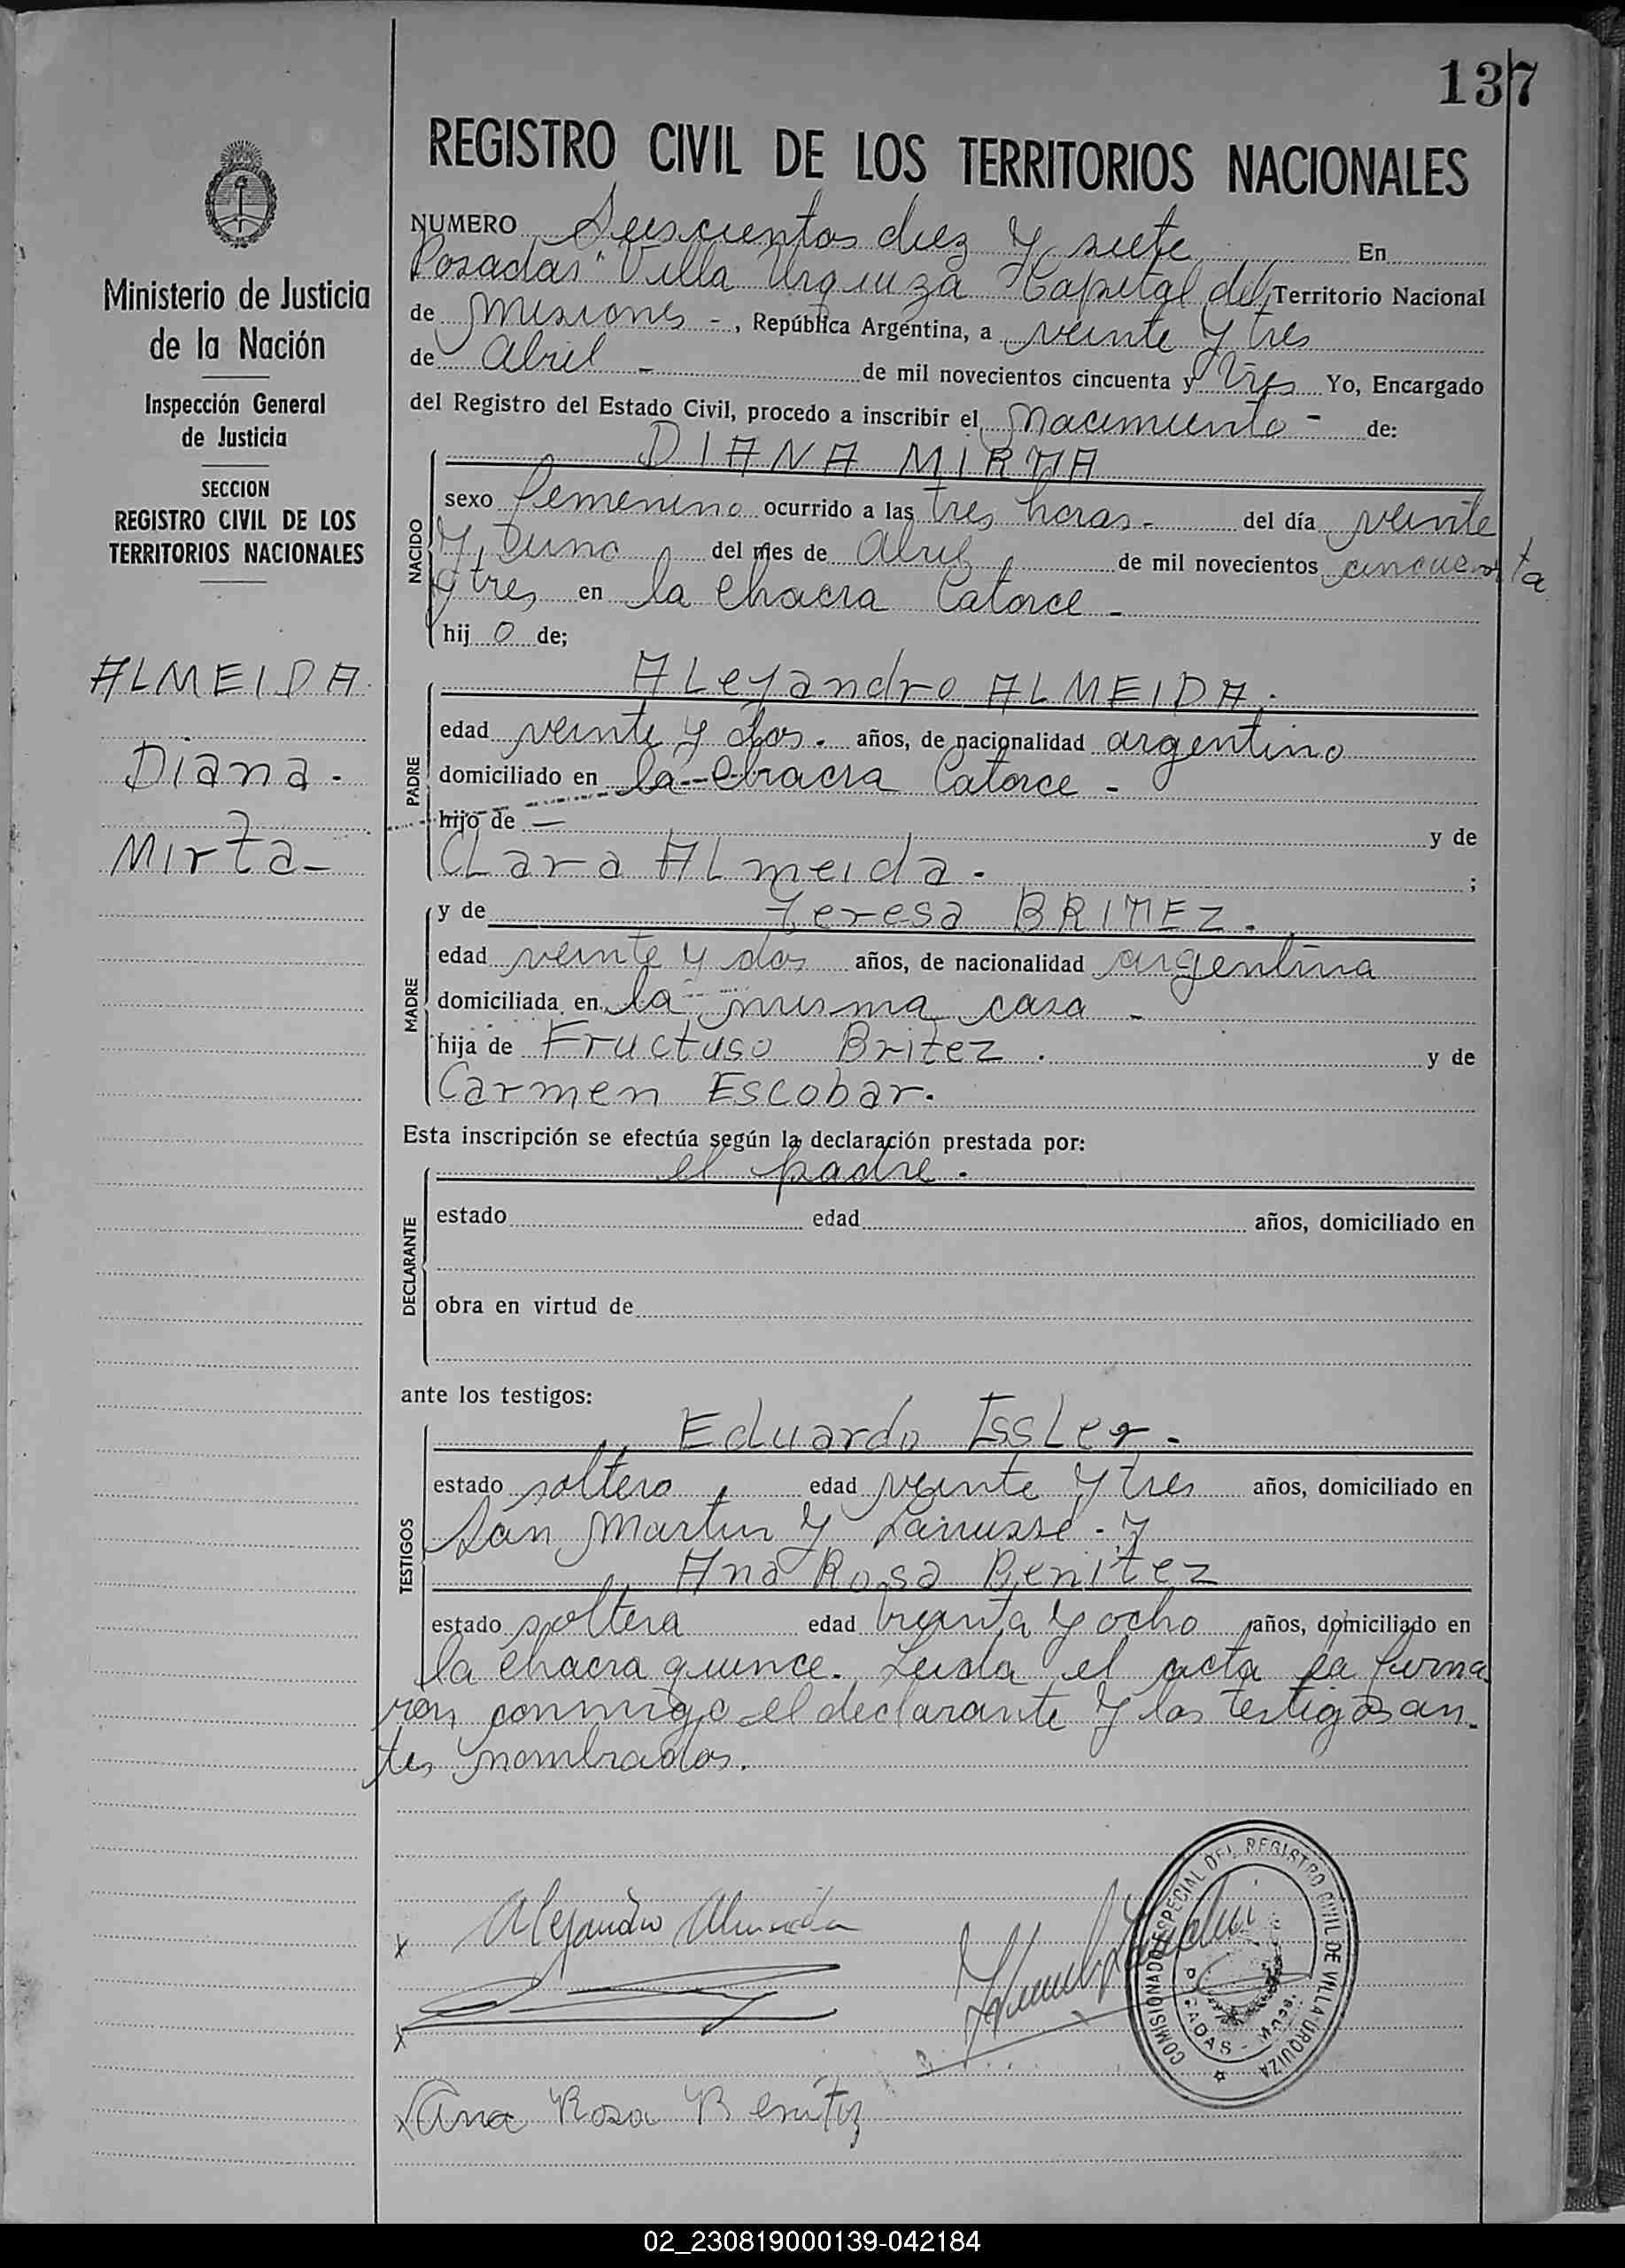 137
REGISTRO CIVIL DE LOS TERRITORIOS NACIONALES
Ministerio de Justicia
de la Nación
Inspección General
de Justicia
SECCION
REGISTRO CIVIL DE LOS
TERRITORIOS NACIONALES
ALMEIDA
Diana -
Mirta -
NUMERO Seiscientos diez y siete En
Posadas "Villa Urquiza Capital del Territorio Nacional
de Misiones -, República Argentina, a veinte y tres
de Abril - de mil novecientos cincuenta y tres Yo, Encargado
del Registro del Estado Civil, procedo a inscribir el nacimiento - de:
DIANA MIRTA
NACIDO
sexo femenino ocurrido a las tres horas - del día veinte
y uno del mes de Abril de mil novecientos cincuenta
y tres en la chacra Catorce -
hij o de;
Aleyandro ALMEIDA.
PADRE
edad veinte y dos. años, de nacionalidad argentino
domiciliado en la chacra Catorce -
hijo de — y de
Clara Almeida. ;
y de Teresa BRITEZ.
MADRE
edad veinte y dos años, de nacionalidad argentina
domiciliada en la misma casa -
hija de Fructuso Britez. y de
Carmen Escobar.
Esta inscripción se efectúa según la declaración prestada por:
el padre.
DECLARANTE
estado edad años, domiciliado en
obra en virtud de
ante los testigos:
Eduardo Issler -
TESTIGOS
estado soltero edad veinte y tres años, domiciliado en
San Martin y Lanusse - y
Ana Rosa Benitez
estado soltera edad treinta y ocho años, domiciliado en
la chacra quince. Leida el acta la firma
ron conmigo el declarante y los testigos an-
tes nombrados.
x Alejandro Almeida
x
x Ana Rosa Benitez
COMISIONADO ESPECIAL DEL REGISTRO CIVIL DE VILLA URQUIZA
POSADAS - Mnes.
02_230819000139-042184